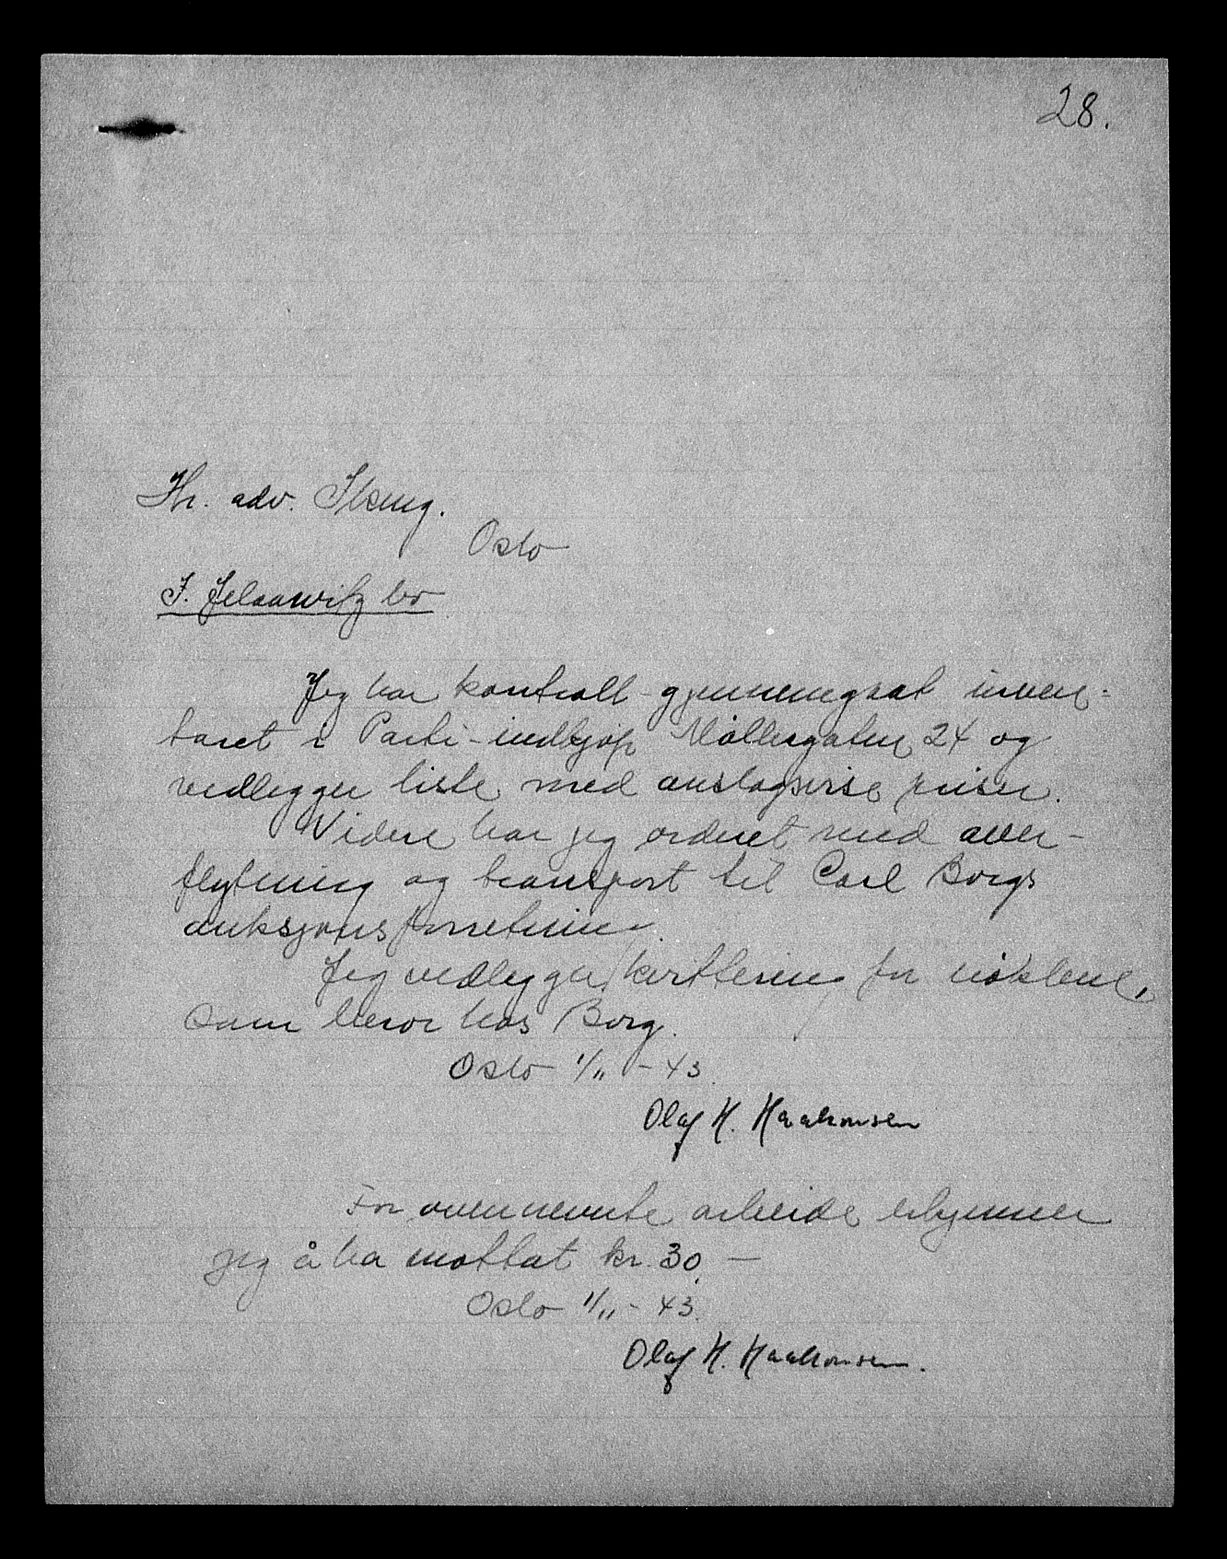 28.
Hr. adv.
Oslo
J. Jelaawitz bo
Jeg har kontroll-gjennemgaat inven-
taret i Parti-indkjøp Møllergaten 24 og
vedlegger liste med anslagsvise priser.
Videre har jeg ordnet med over-
flytning og transport til Carl Borgs
auksjonsforretning.
Jeg vedlegger kvittering for nøklene,
som beror hos Borg.
Oslo 1/11 - 43.
Olaf H. Haakonsen
For ovennevnte arbeide erkjenner
jeg å ha mottat kr. 30. —
Oslo 1/11 - 43.
Olaf H. Haakonsen.